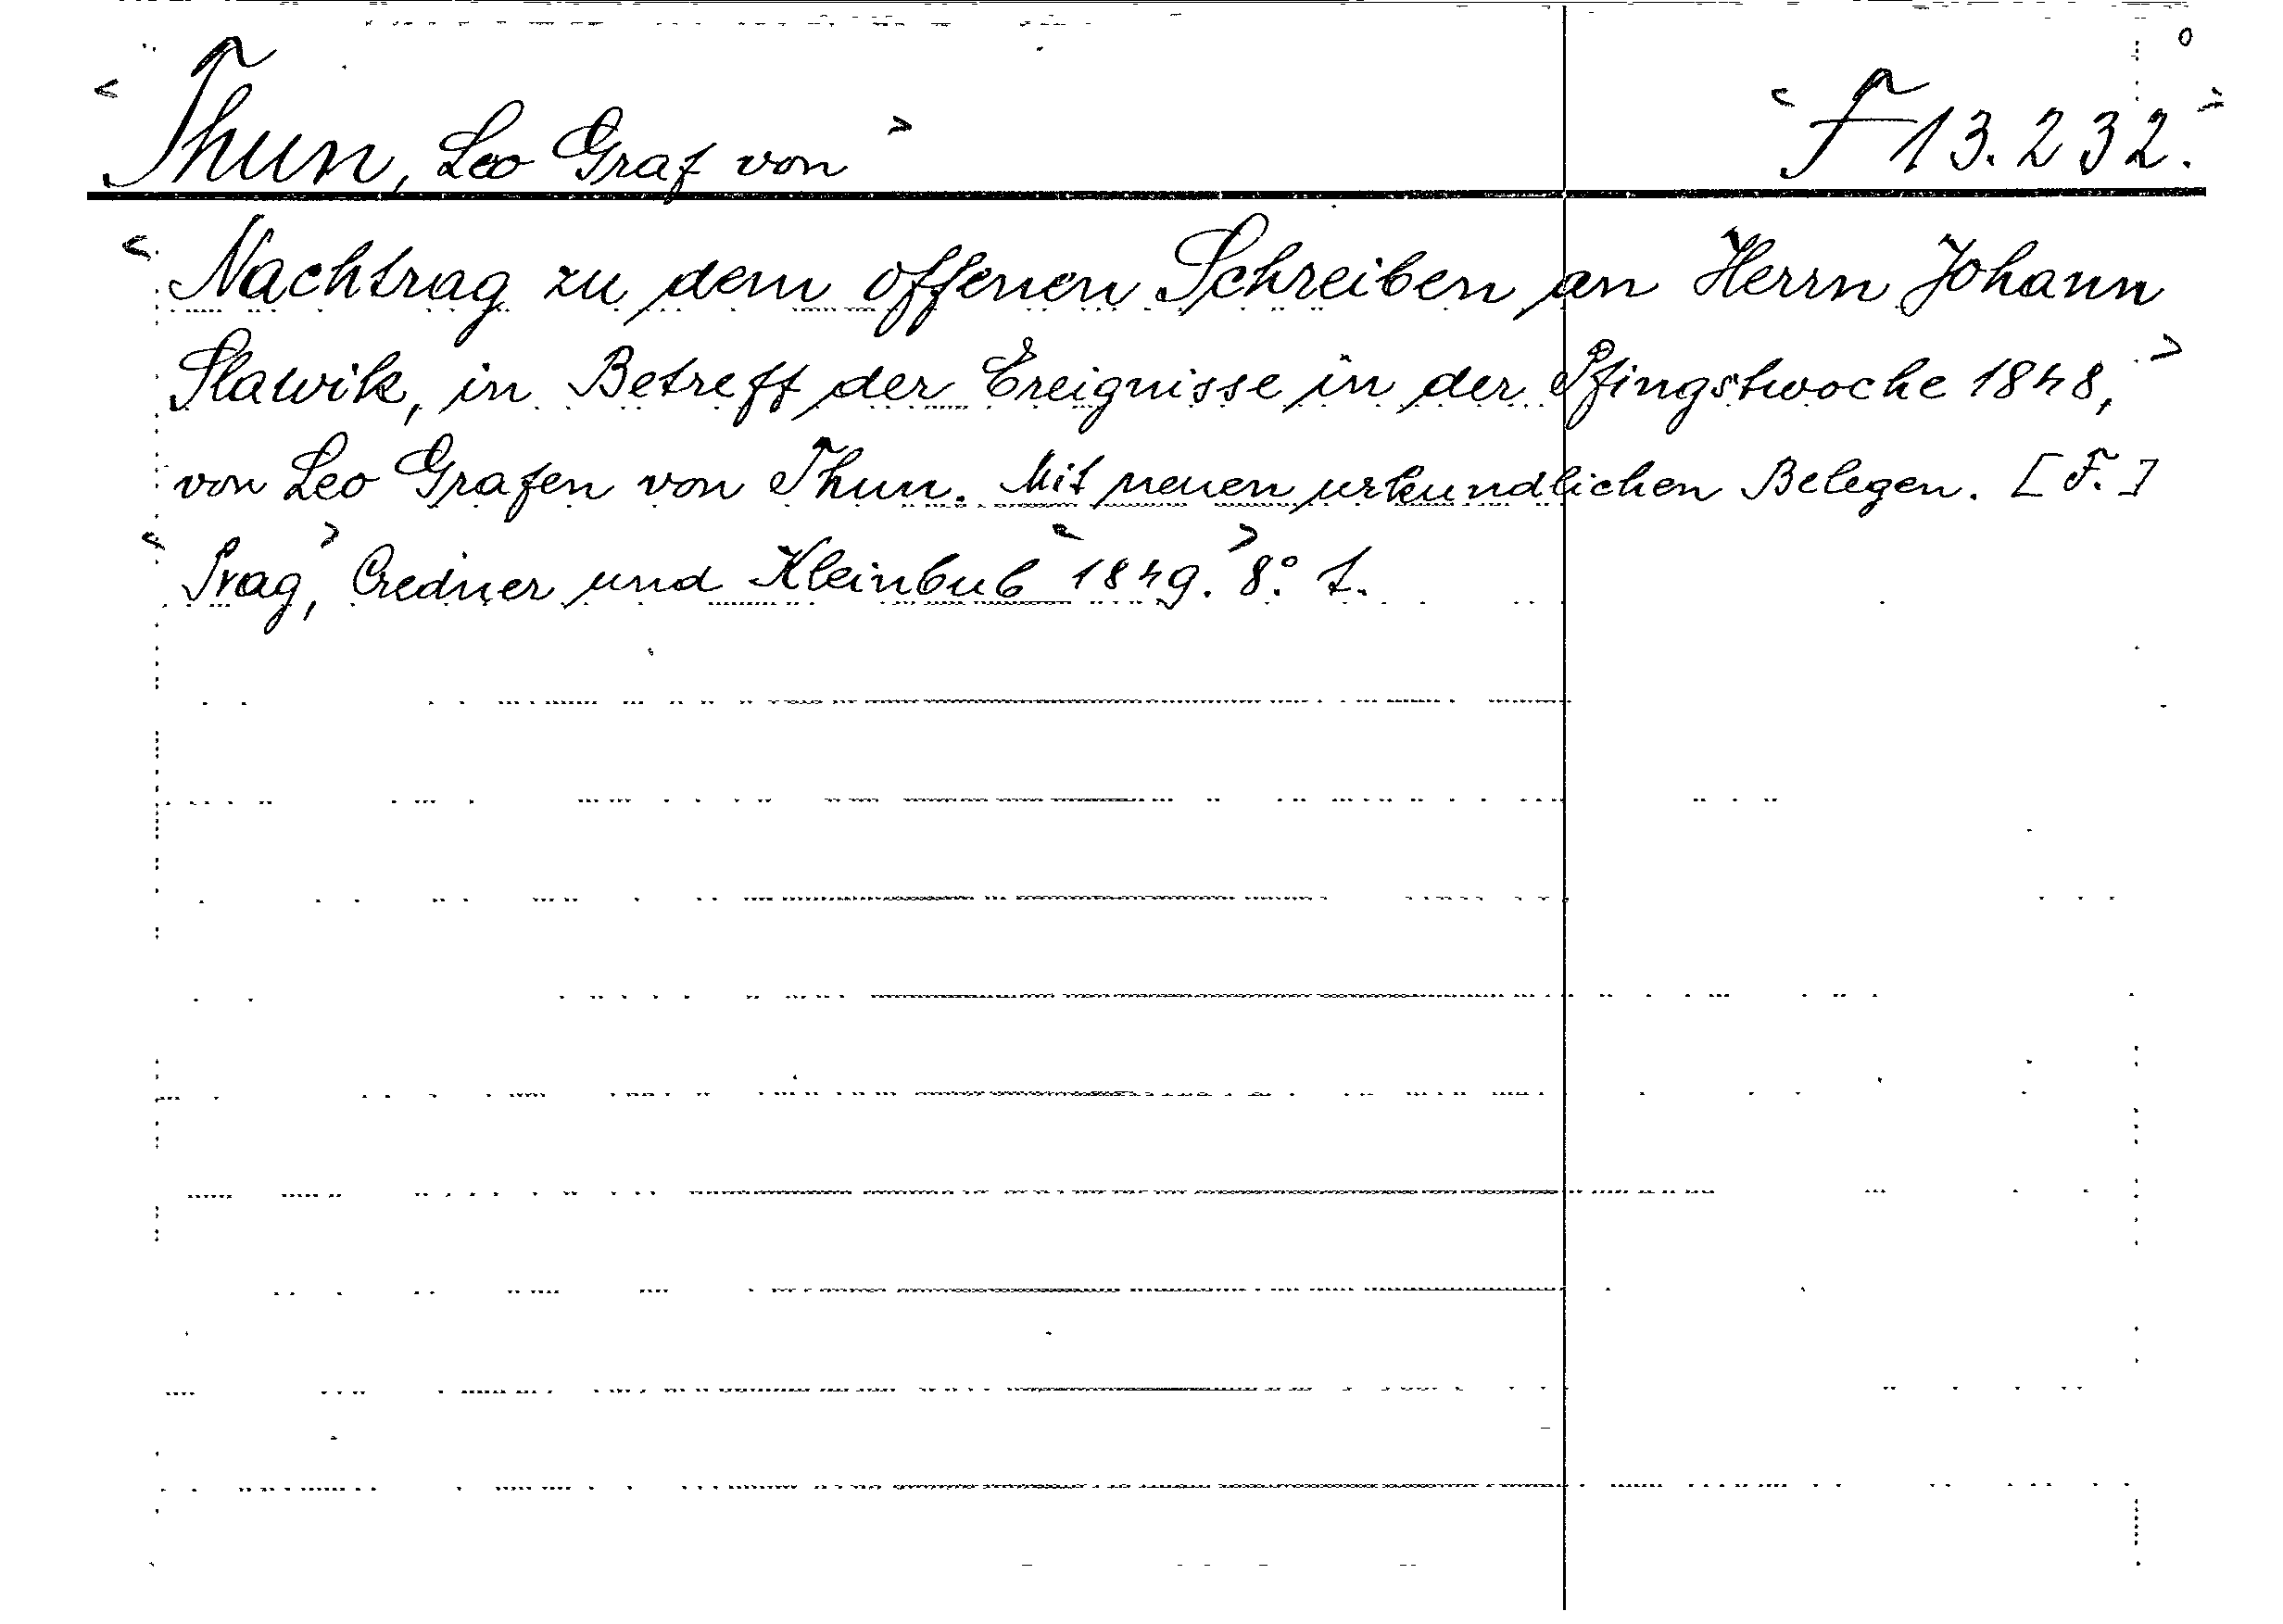 <Thun, Leo Graf von> <F 13.232.>
<Nachtrag zu dem offenen Schreiben an Herrn Johann
Slawik, in Betreff der Ereignisse in der Pfingstwoche 1848,>
von Leo Grafen von Thun. Mit neuen urkundlichen Belegen. [F.]
<Prag,> Credner und Kleinbub <1849.> 8° 1.